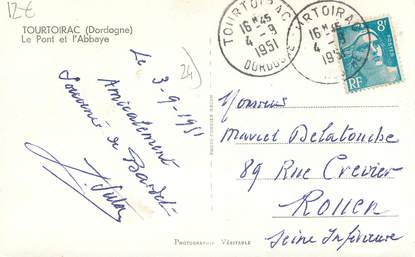 12€
TOURTOIRAC (Dordogne)
Le Pont et l'Abbaye
24
Le 3-9-1951
Amicalement
Souvenir de
TOURTOIRAC
16H45
4-9
1951
DORDOGNE
RTOIRAC
16H45
4-9
195
8F
RF
Monsieur
Marcel Delatouche
89 Rue Crevier
Rouen
Seine Inférieure
PHOTOGRAPHIE VÉRITABLE